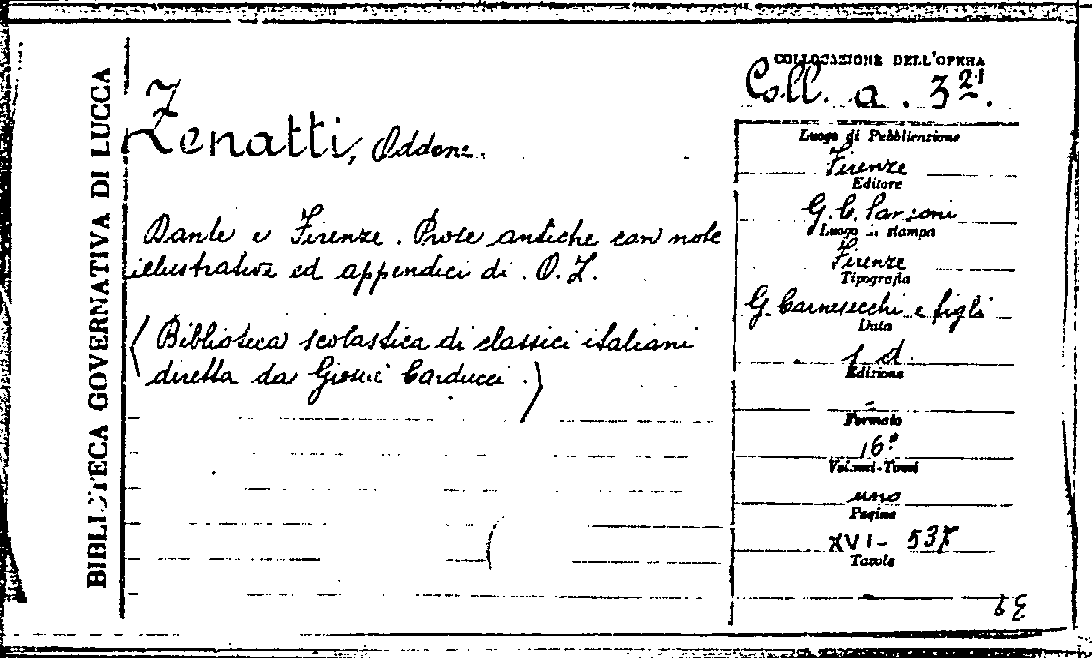 BIBLIOTECA GOVERNATIVA DI LUCCA
Zenatti, Oddone.
Dante e Firenze. Prose antiche con note
illustrative ed appendici di O. Z.
(Biblioteca scolastica di classici italiani
diretta da Giosuè Carducci.)
COLLOCAZIONE DELL'OPERA
Coll. a. 3 21.
Luogo di Pubblicazione
Firenze
Editore
G. C. Sansoni
Luogo di stampa
Firenze
Tipografia
G. Carnesecchi e figli
Data
s. d.
Edizione
-
Formato
16°
Volumi-Tomi
uno
Pagine
XVI - 537
Tavole